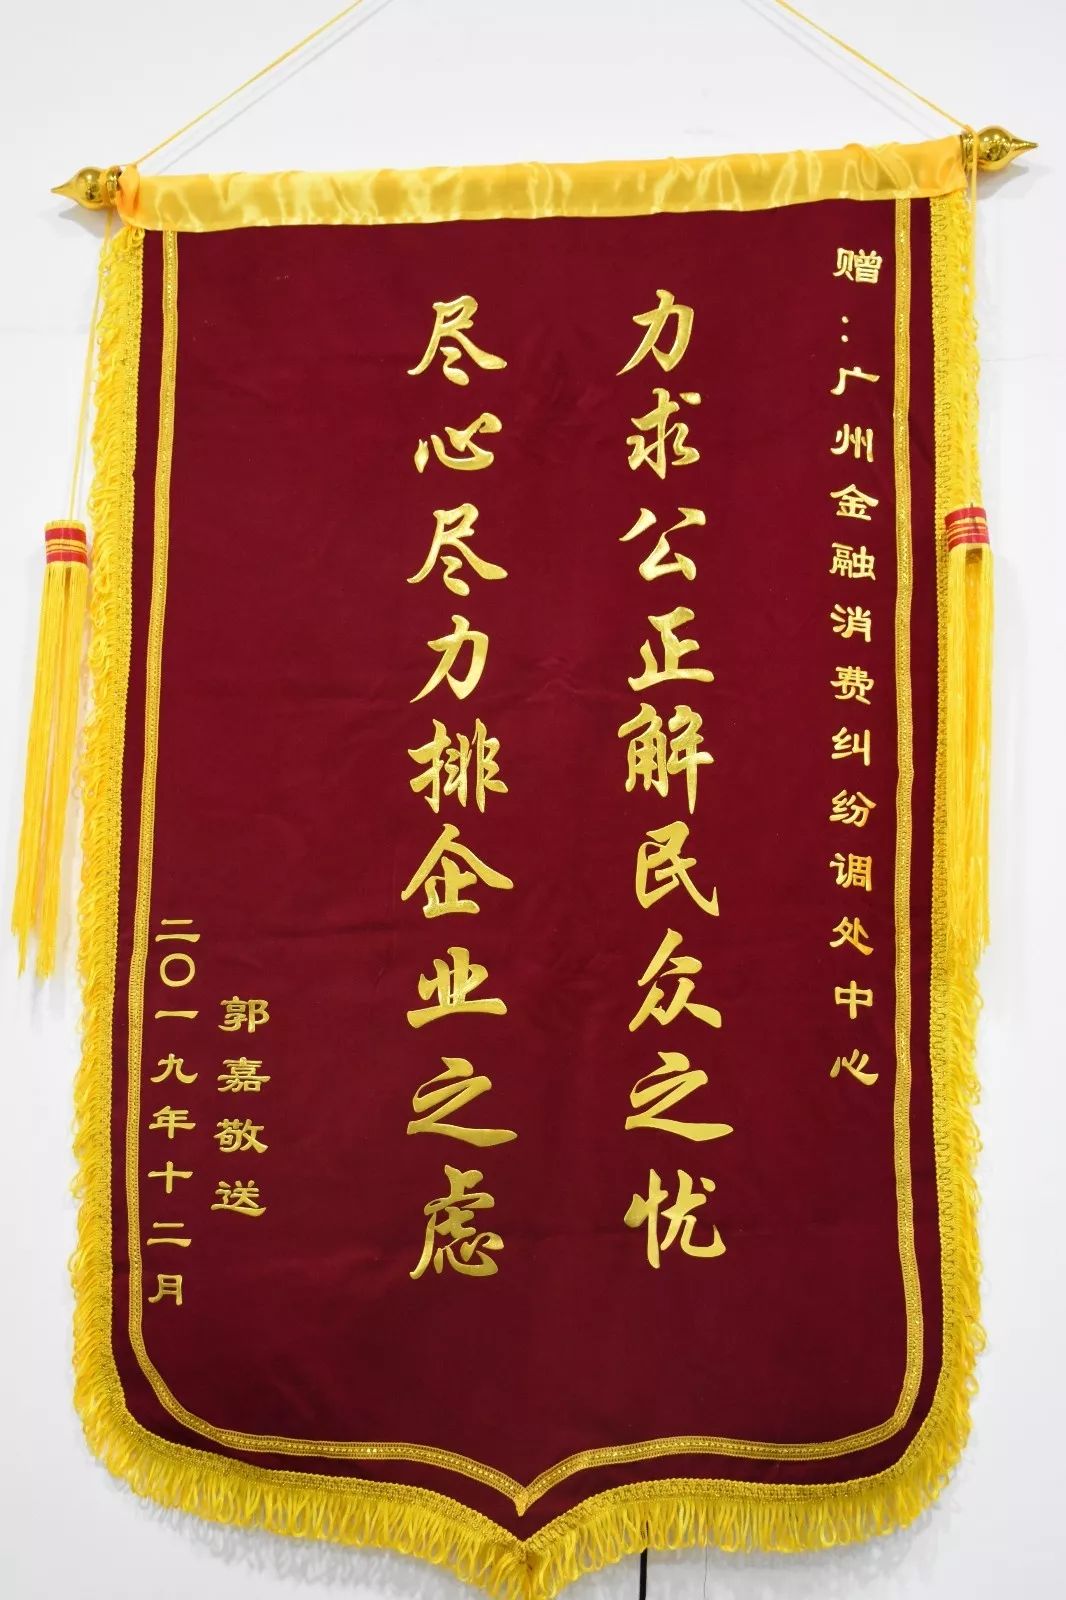 赠：广州金融消费纠纷调处中心
力求公正解民众之忧
尽心尽力排企业之虑
郭嘉敬送
二〇一九年十二月